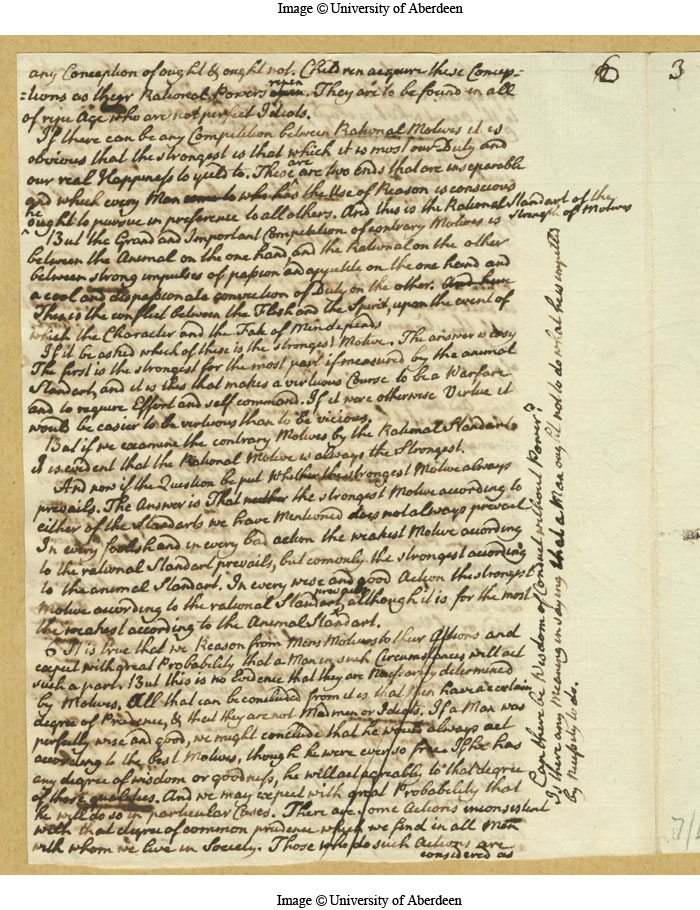 Image © University of Aberdeen
6
3
any Conception of ought & ought not. Children acquire these Concep-
-tions as their Rational Powers ripen. They are to be found in all
of ripe Age who are not perfect Idiots.
If there can be any Competition between Rational Motives it is
obvious that the strongest is that which it is most our Duty and
our real Happiness to yield to. These are two Ends that are inseparable
and which every Man come to who has the Use of Reason is conscious
he ought to pursue in preference to all others. And this is the Rational Standart of the
strength of Motives
But the Grand and Important Competition of contrary Motives is
between the Animal on the one hand, and the Rational on the other
between strong impulses of passion and appetite on the one hand and
a cool and dispassionate conviction of Duty on the other. And here
Then is the conflict between the Flesh and the Spirit, upon the event of
which the Character and the Fate of Men depends
If it be asked which of these is the strongest Motive. The answer is easy
The first is the strongest for the most part if measured by the animal
Standart, and it is this that makes a virtuous Course to be a Warfare
and to require Effort and self command. If it were otherwise Virtue it
would be easier to be virtuous than to be vicious.
But if we examine the contrary Motives by the Rational Standart
I is evident that the Rational Motive is always the Strongest.
And now if the Question be put Whether the strongest Motive always
prevails. The Answer is That neither the strongest Motive according to
either of the Standarts we have Mentioned does not always prevail
In every foolish and in every bad action the weakest Motive acording
to the rational Standart prevails, but comonly the strongest acording
to the animal Standart. In every wise and good Action the strongest
Motive acording to the rational Standart prevails, although it is for the most
the weakest according to the Animal Standart.
6 It is true that we Reason from Mens Motives to their Actions and
expect with great Probability that a Man in such Circumstances will act
such a part. But this is no Evidence that they are Necessarly determined
by Motives. All that can be concluded from it is that Men have a certain
degree of Prudence, & that they are not Mad men or Idiots. If a Man was
perfectly wise and good, we might conclude that he would always act
according to the best Motives, though he were ever so free. If he has
any degree of wisdom or goodness, he will act agreably to that degree
of those qualities. And we may expect with great Probability that
he will do so in particular Cases. There are some Actions inconsistent
with that degree of common prudence which we find in all Men
with whom we live in Society. Those who do such Actions are
considered as
Can there be Wisdom of Conduct without Power?
Is there any Meaning in saying that a Man ought not to do what he is impelled
by necessity to do.
Image © University of Aberdeen